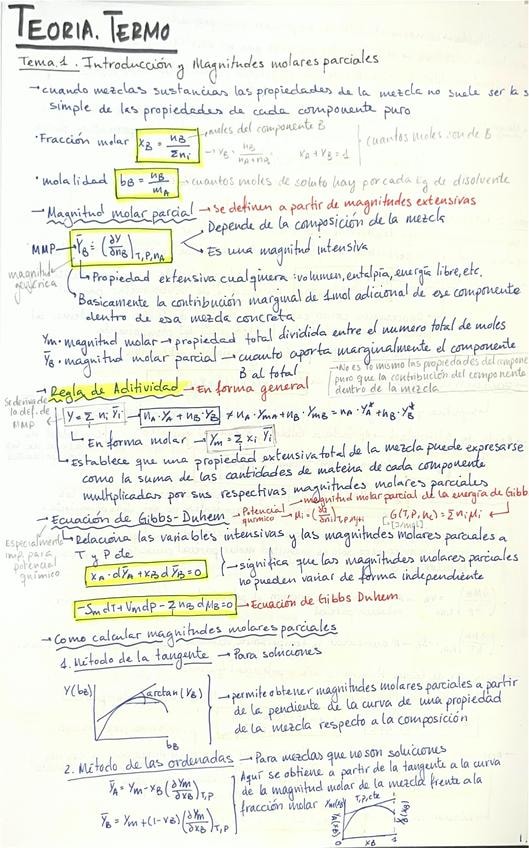 TEORIA. TERMO
Tema 1. Introducción y Magnitudes molares parciales
→ cuando mezclas sustancias las propiedades de la mezcla no suele ser la s
simple de las propiedades de cada componente puro
· Fracción molar x_B = n_B / Σn_i → moles del componente B → x_B = n_B / n_A+n_B x_A + x_B = 1 cuantos moles son de B
· molalidad b_B = n_B / m_A → cuantos moles de soluto hay por cada kg de disolvente
→ Magnitud molar parcial → Se definen a partir de magnitudes extensivas
Depende de la composición de la mezcla
MMP → Ȳ_B = (∂Y/∂n_B)_T,P,n_A
Es una magnitud intensiva
magnitud genérica
Propiedad extensiva cualquiera: volumen, entalpía, energía libre, etc.
Basicamente la contribución marginal de 1mol adicional de ese componente
dentro de esa mezcla concreta
Y_m · magnitud molar → propiedad total dividida entre el numero total de moles
Ȳ_B · magnitud molar parcial → cuanto aporta marginalmente el componente
B al total
→ No es lo mismo las propiedades del compone
puro que la contribución del componente
dentro de la mezcla
→ Regla de Aditividad → En forma general
Se deriva de la def. de MMP
Y = Σ n_i Ȳ_i → n_A·Ȳ_A + n_B·Ȳ_B ≠ n_A·Y_mA + n_B·Y_mB = n_A·Y_A* + n_B·Y_B*
En forma molar → Y_m = Σ x_i Ȳ_i
Establece que una propiedad extensiva total de la mezcla puede expresarse
como la suma de las cantidades de materia de cada componente
multiplicadas por sus respectivas magnitudes molares parciales
→ magnitud molar parcial de la energía de Gibb
→ Ecuación de Gibbs-Duhem → Potencial químico → μ_i = (∂G/∂n_i)_T,P,n_j≠i G(T,P,n_i) = Σn_i μ_i
[J/mol]
Especialmente imp para potencial químico
Relaciona las variables intensivas y las magnitudes molares parciales a
T y P cte
x_A · dȲ_A + x_B dȲ_B = 0
→ significa que las magnitudes molares parciales
no pueden variar de forma independiente
-S_m dT + V_m dP - Σ n_B dμ_B = 0 → Ecuación de Gibbs Duhem
→ Como calcular magnitudes molares parciales
1. Método de la tangente → Para soluciones
Y(b_B)
arctan(Y_B)
b_B
→ permite obtener magnitudes molares parciales a partir
de la pendiente de la curva de una propiedad
de la mezcla respecto a la composición
2. Método de las ordenadas → Para mezclas que no son soluciones
Ȳ_A = Y_m - x_B (∂Y_m/∂x_B)_T,P
Ȳ_B = Y_m + (1-x_B) (∂Y_m/∂x_B)_T,P
Aquí se obtiene a partir de la tangente a la curva
de la magnitud molar de la mezcla frente a la
fracción molar
Y_m(x_B)
T,P, cte
Ȳ_A(x_B)
Ȳ_B(x_B)
0
x_B
1
1.